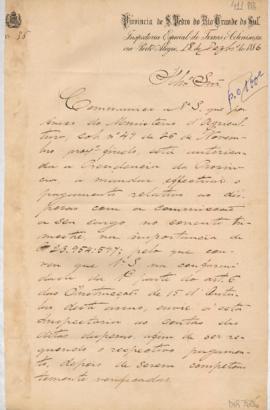 Provincia de S. Pedro do Rio Grande do Sul.
Inspectoria Especial de Terras e Colonisação
em Porto Alegre, 18 de Dezbro de 1886
Illmo Snr
Communico a V.S. que por
Aviso do Ministerio d'Agricul
tura, sob nº 47 de 26 de Novem
bro proxº findo, está autorisa
da a Presidencia da Provin
cia a mandar effectuar o
pagamento relativo ás dis
pezas com a commissão
a seu cargo no corrente tri
mestre, na importancia de
23.954:597; pelo que con
vem que V.S. na conformi
dade da 1ª parte do art. 6
das Instrucções de 15 d'Outu
bro deste anno, envie a esta
Inspectoria as contas das
ditas despezas, afim de ser re
querido o respectivo pagamen
to, depois de serem competen
temente verificadas.